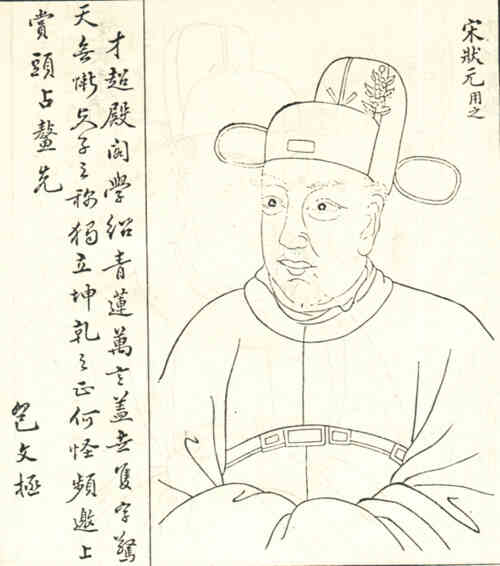 宋狀元用之
才超殿閣學紹青蓮萬言蓋世隻字驚
天無慚父子之稱獨立坤乾之正何怪頻邀上
賞頭占鰲先
包文拯